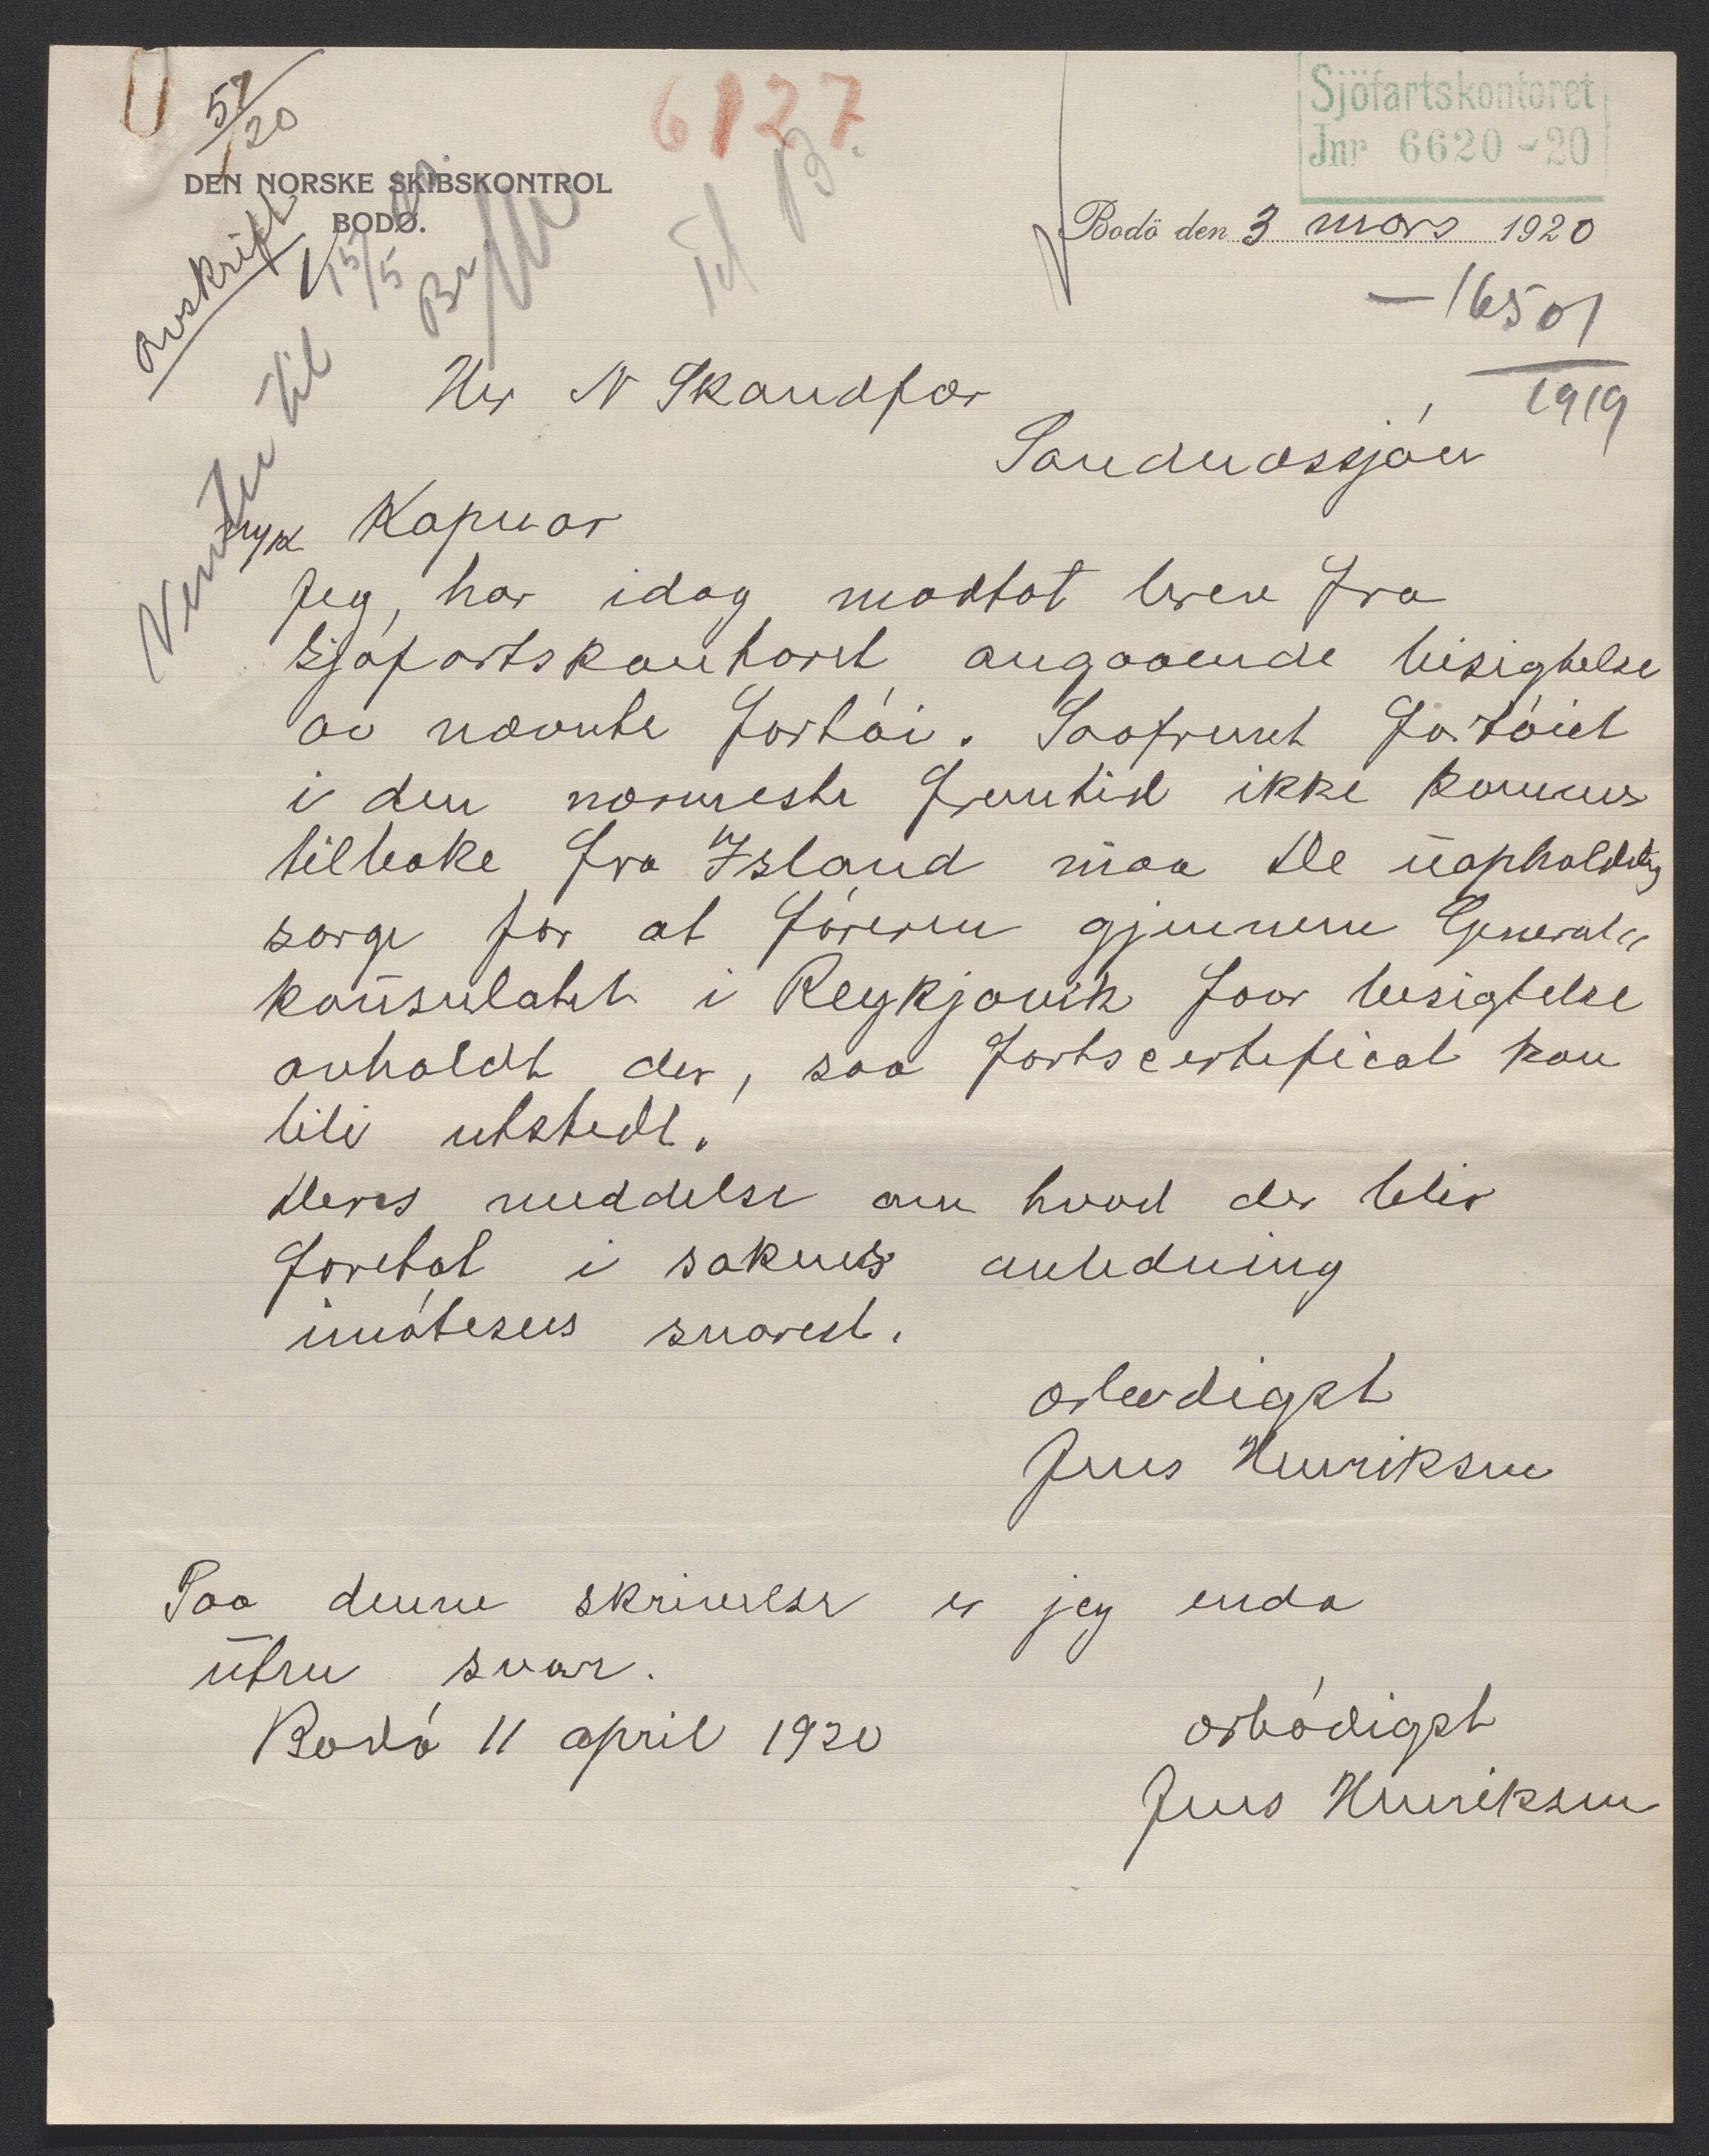 57/20
6127
Sjöfartskontoret
Jnr 6620-20
DEN NORSKE SKIBSKONTROL
BODØ.
Bodö den 3 mars 1920
Avskrift
15/5
-16501
1919
Venter til
Hr N Skandfer
Sandnessjóen
Kapnor
Jeg har idag modtat brev fra
Sjófartskontoret angaaende besigtelse
av nævnte fartói. Saafremt fartóiet
i den nærmeste fremtid ikke kommer
tilbake fra Island maa De uopholdelig
sørge for at fóreren gjennem General"
konsulatet i Reykjavik faar besigtelse
avholdt der, saa fartscertificat kan
bli utstedt.
Deres meddelse om hvad der blir
foretat i sakens anledning
imótesees snarest.
ærbødigst
Jens Henriksen
Paa denne skrivelse er jeg enda
uten svar.
Bodó 11 april 1920
ærbódigst
Jens Henriksen